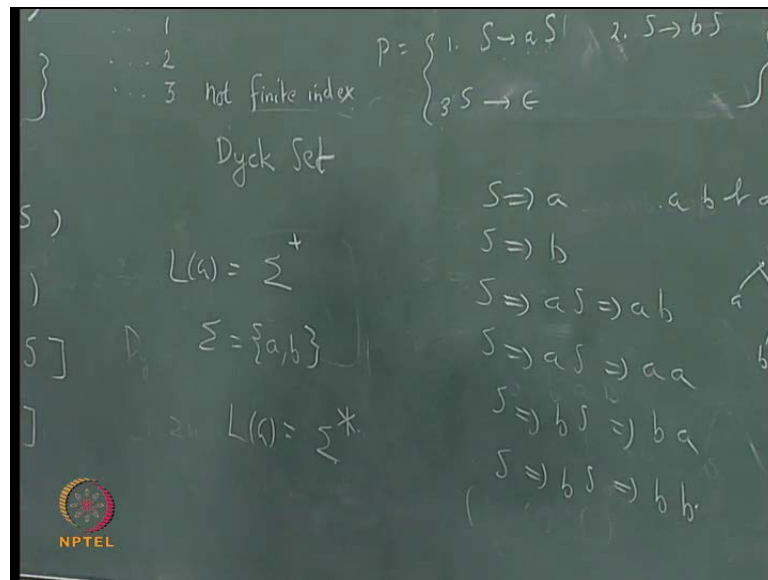 ... 1
... 2
... 3 not finite index
Dyck Set
L(G) = Σ⁺
Σ = {a,b}
L(G) = Σ*
P = { 1. S → aS 2. S → bS
3 S → ε
S ⇒ a
S ⇒ b
S ⇒ aS ⇒ ab
S ⇒ aS ⇒ aa
S ⇒ bS ⇒ ba
S ⇒ bS ⇒ bb.
S )
)
S ]
]
a
b
NPTEL